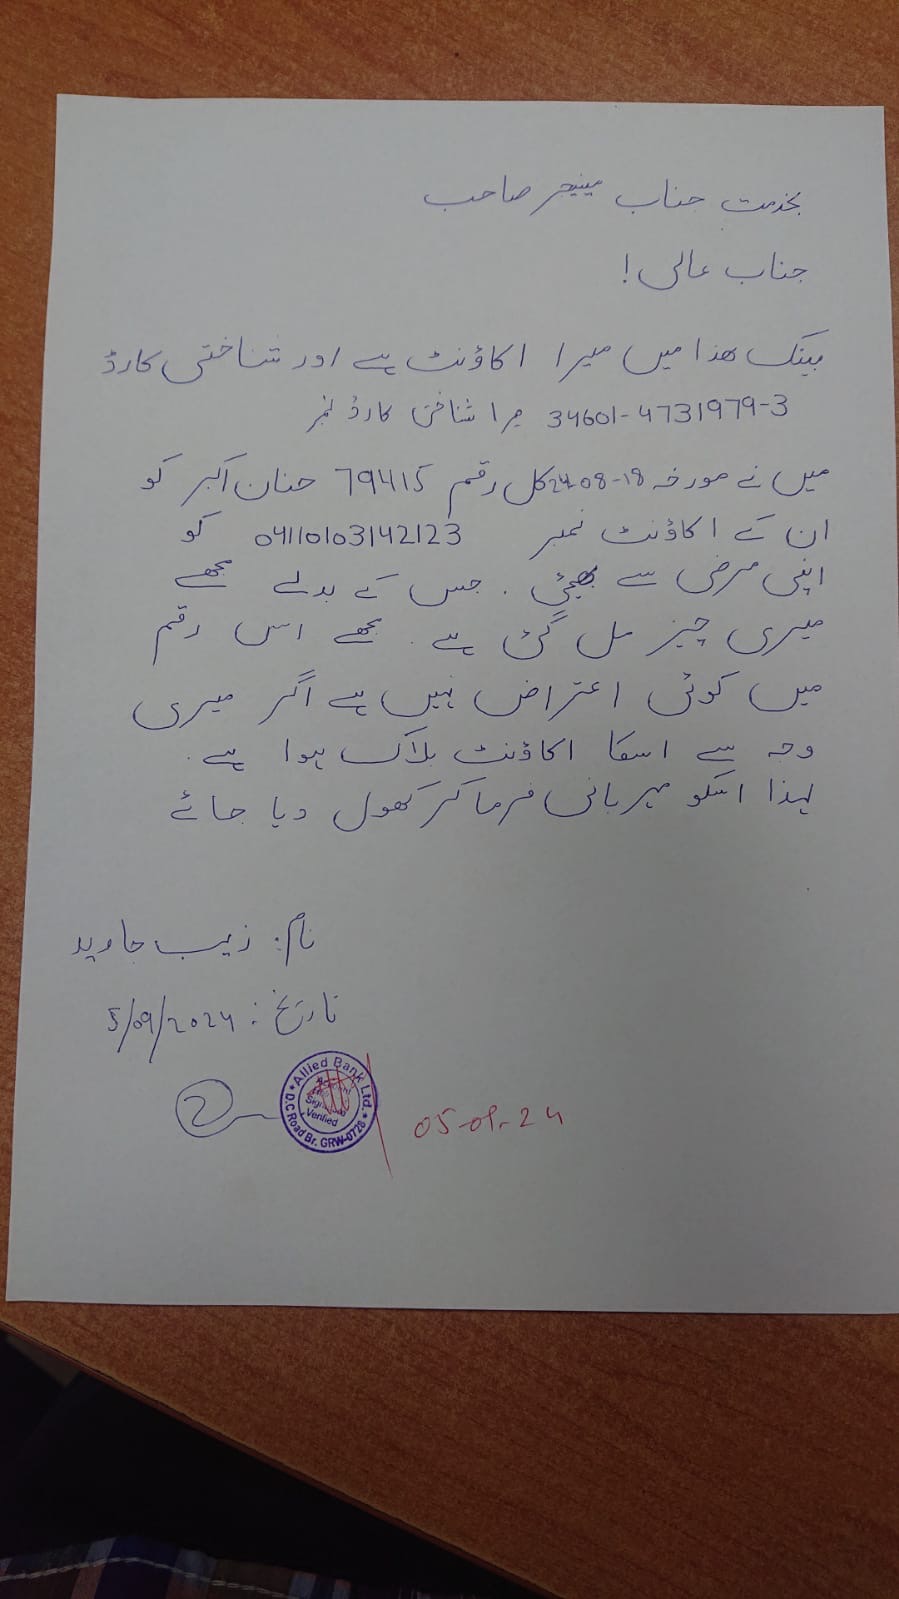 بخدمت جناب مینیجر صاحب
جناب عالی!
بینک ھذا میں میرا اکاؤنٹ ہے اور شناختی کارڈ
34601-4731979-3 میرا شناختی کارڈ نمبر
میں نے مورخہ 18-08-24 کل رقم 79415 حنان اکبر کو
ان کے اکاؤنٹ نمبر 04110103142123 کو
اپنی مرضی سے بھیجی . جس کے بدلے مجھے
میری چیز مل گئ ہے . مجھے اس رقم
میں کوئی اعتراض نہیں ہے اگر میری
وجہ سے اسکا اکاؤنٹ بلاک ہوا ہے .
لہذا اسکو مہربانی فرما کر کھول دیا جائے
نام : زیب جاوید
تاریخ : 5/09/2024
Allied Bank Ltd.
Verified
D.C Road Br. GRW-0728
05-09-24